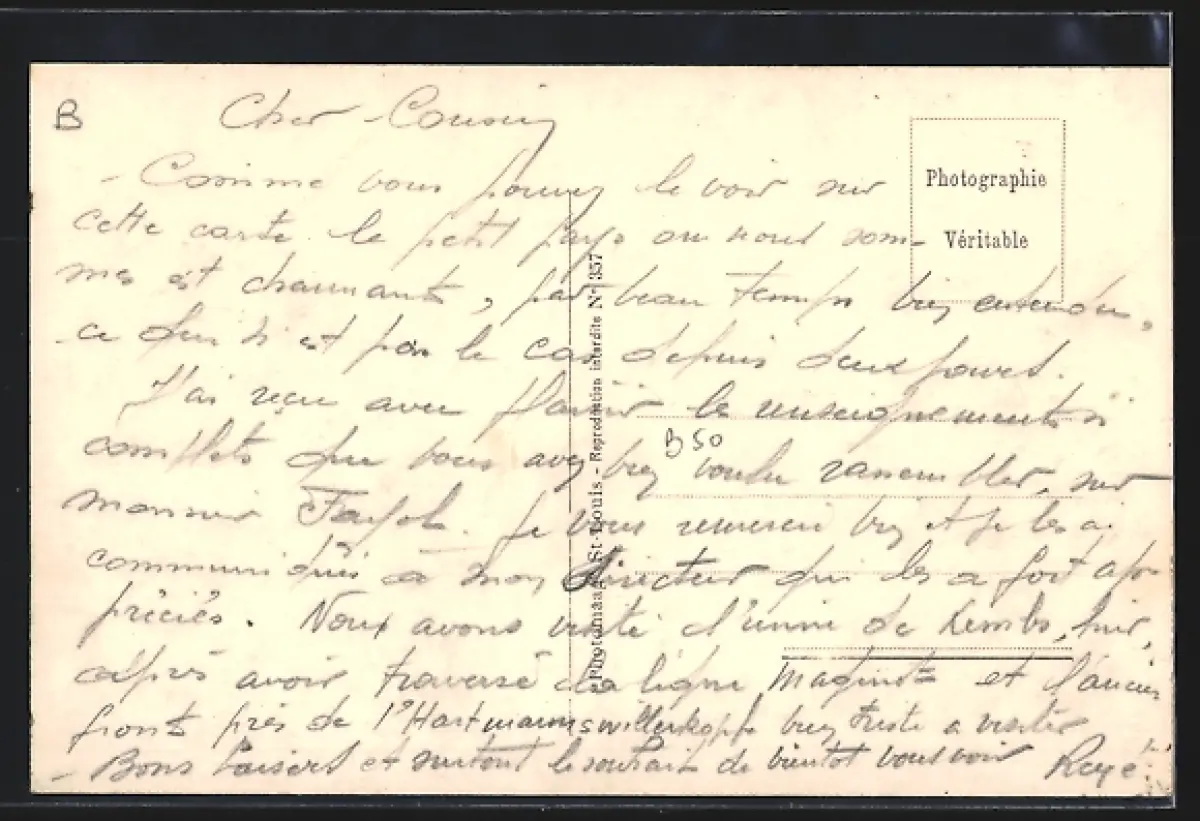 B
Cher Cousin
- Comme vous pouvez le voir sur
cette carte le petit pays ou nous som-
mes est charmant, par beau temps bien entendu,
ce qui n'est pas le cas depuis deux jours.
J'ai reçu avec plaisir les renseignements si
complets que vous avez bien voulu rassembler, sur
monsieur Je vous remercie bien et je les ai
communiqués à mon Directeur qui les a fort ap-
préciés. Nous avons visité de hier,
après avoir traversé la ligne Maginot et l'ancien
front près de l'Hartmannswillerkopf bien triste a visiter
- Bons baisers et surtout le souhait de bientôt vous voir
B 50
Photographie
Véritable
St-Louis - Reproduction interdite N° 357